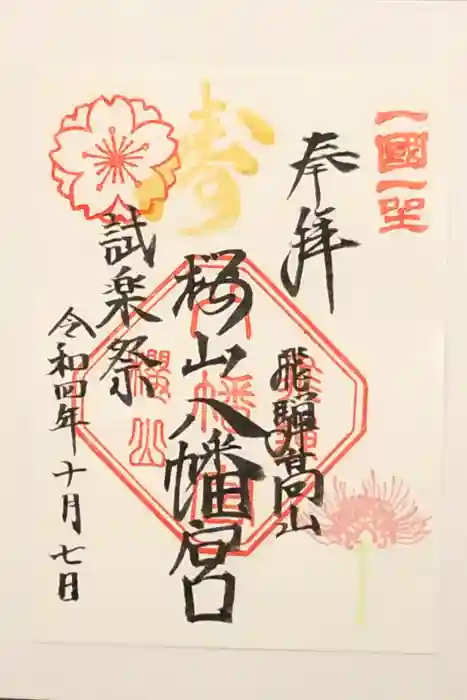 一國一社
奉拝
飛騨高山
桜山八幡宮
八幡宮
櫻山
寿
試楽祭
令和四年十月七日